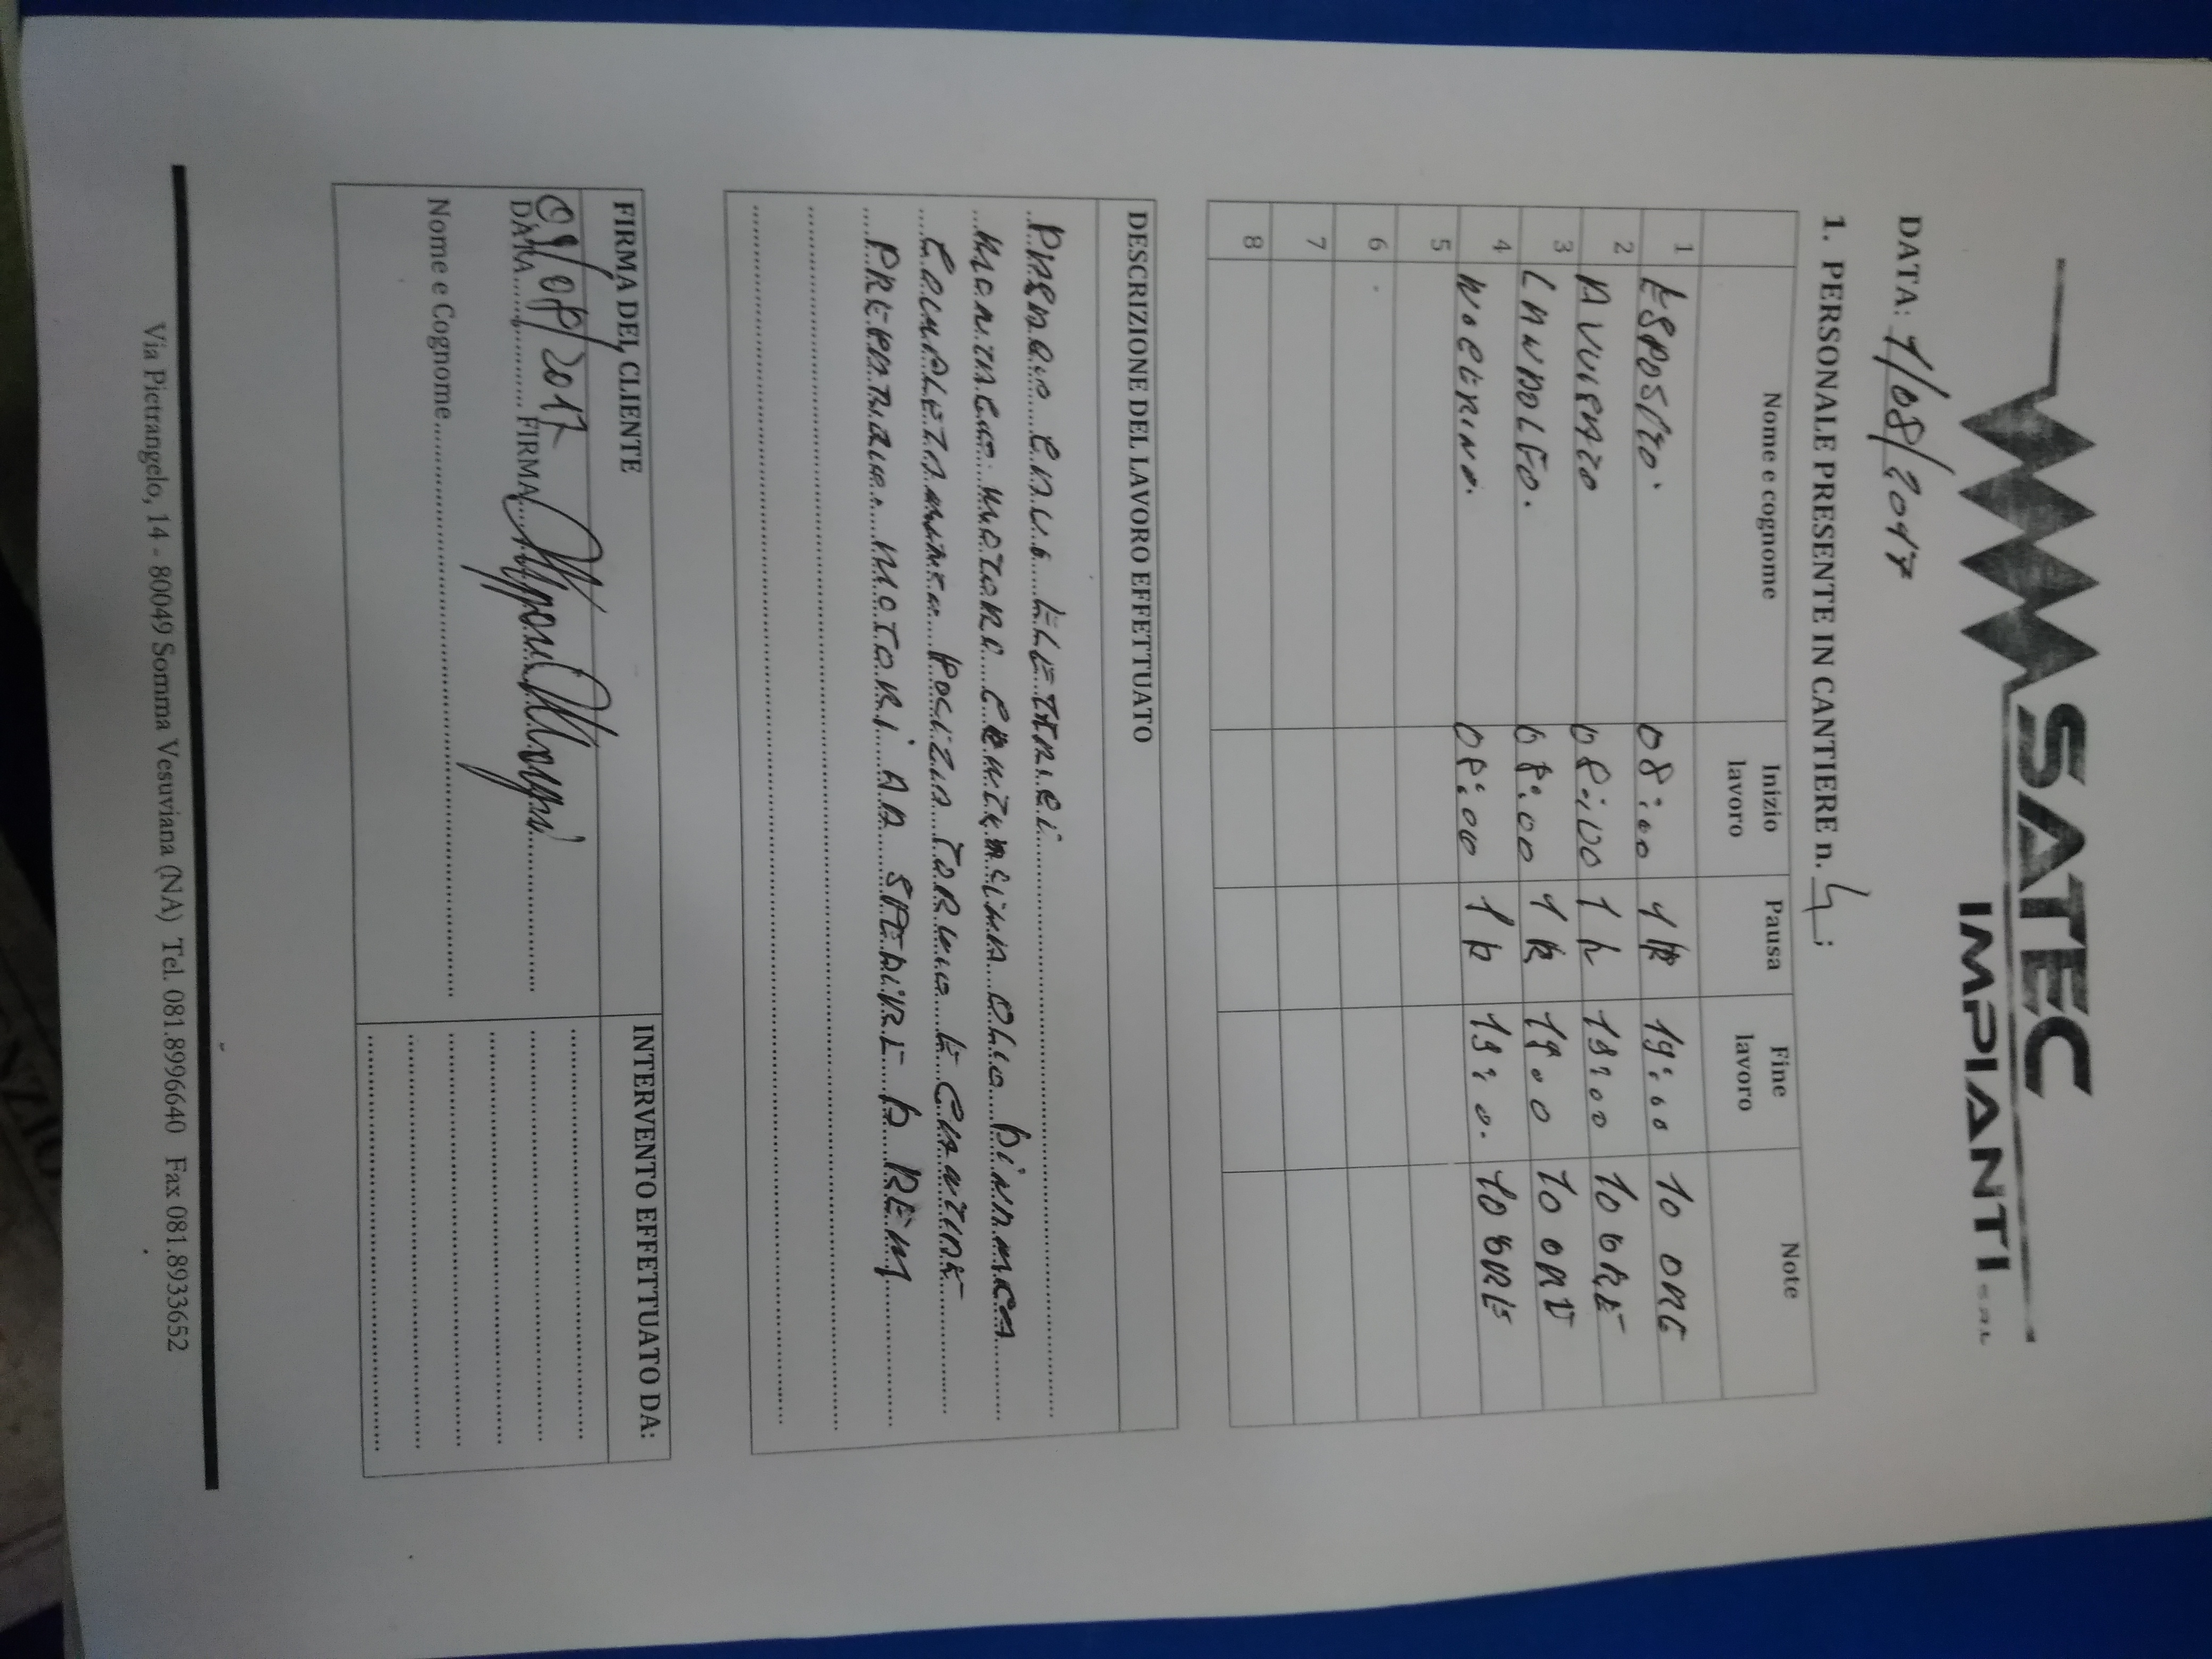 SATEC
IMPIANTI S.R.L.
DATA: 1/08/2017
1. PERSONALE PRESENTE IN CANTIERE n. 4;
Nome e cognome Inizio lavoro Pausa Fine lavoro Note
1 ESPOSITO. 08:00 1h 19:00 10 ORE
2 08:00 1h 19:00 10 ORE
3 LANDOLFO. 08:00 1h 19:00 10 ORE
4 NOCERINO. 08:00 1h 19:0. 10 ORE
5
6
7
8
DESCRIZIONE DEL LAVORO EFFETTUATO
CAVI ELETTRICI
MOTORE CENTRALINA OLIO
COMPLETAMENTO PULIZIA TORNIO E CANTINE
MOTORI DA SPEDIRE A REM
FIRMA DEL CLIENTE INTERVENTO EFFETTUATO DA:
01/08/2017
DATA FIRMA
Nome e Cognome
Via Pietrangelo, 14 - 80049 Somma Vesuviana (NA) Tel. 081.8996640 Fax 081.8933652